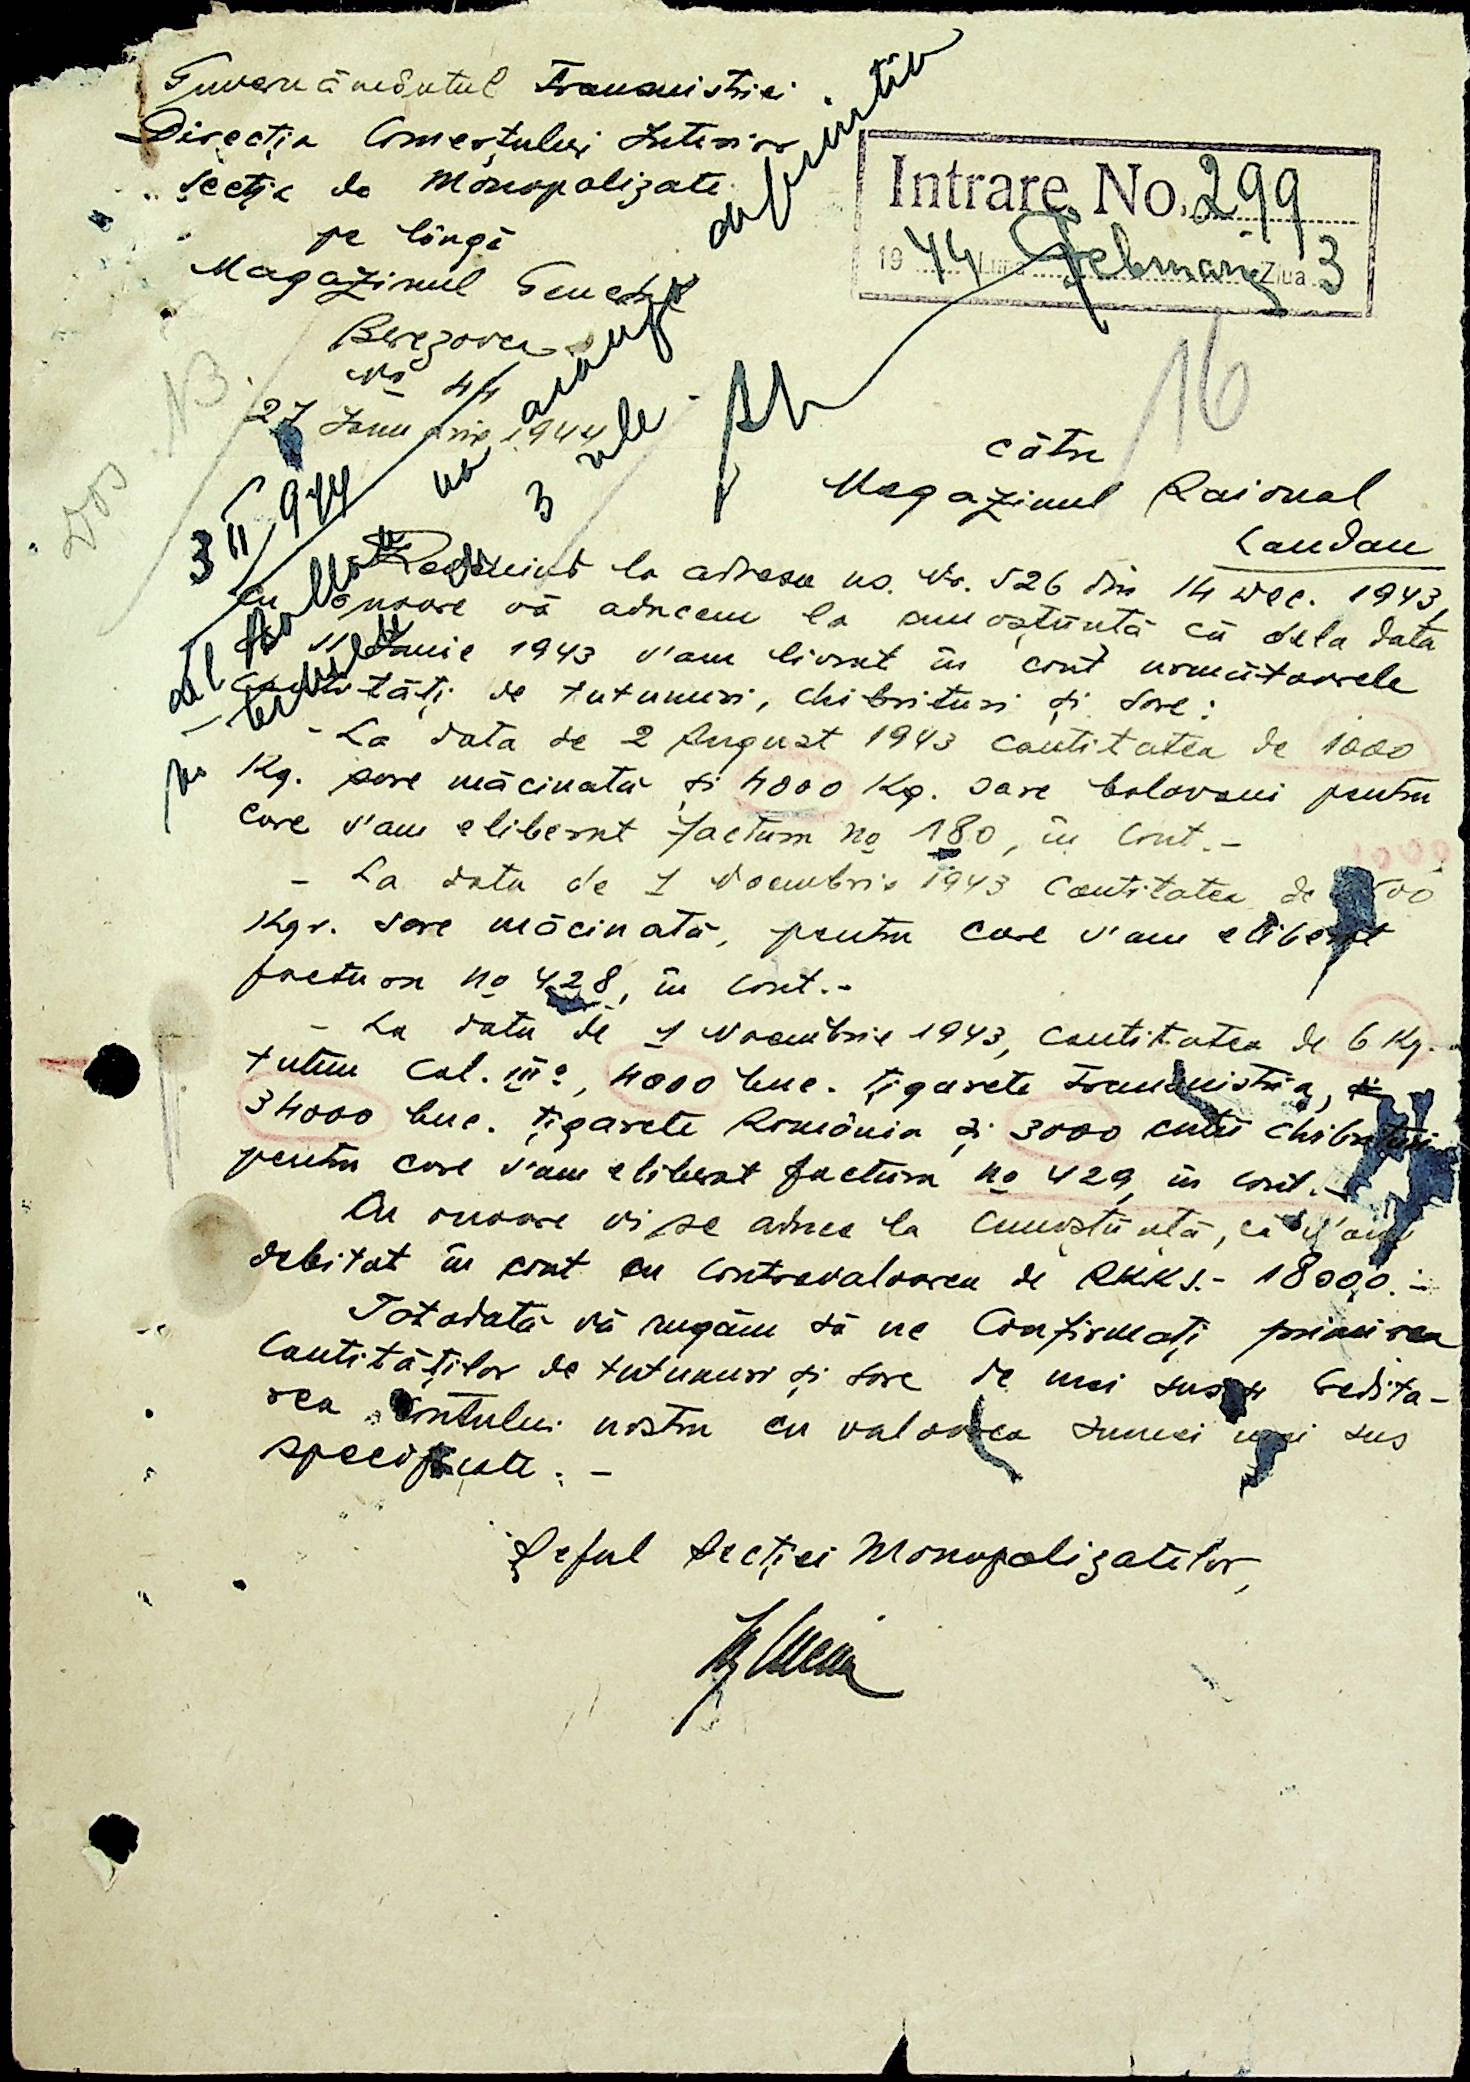 Guvernământul Transnistriei
Direcția Comerțului Interior
Secția de Monopolizate
pe lângă
Magazinul General
Berezovca
No 44
27 Ianuarie 1944
Intrare No. 299
1944 Luna Februarie Ziua 3
16
Dos. N3.
3 II 944
definitiv
către
Magazinul Raional
Landau
la adresa ns. No. 526 din 14 Dec. 1943,
cu onoare vă aducem la cunoștință că dela data
de 11 Iunie 1943 v'am livrat în cont următoarele
cantități de tutunuri, chibrituri și sare:
- La data de 2 August 1943 cantitatea de 1000
Kg. sare măcinată și 4000 Kg. sare bolovani pentru
care v'am eliberat factura no 180, în cont.-
1000
- La data de 1 Noembrie 1943 cantitatea de
Kgr. sare măcinată, pentru care v'am eliberat
factura no 428, în cont.-
- La data de 1 Noembrie 1943, cantitatea de 6 Kg.
tutun Cal. III-a, 4000 buc. țigarete Transnistria,
34000 buc. țigarete România și 3000 cutii chibrituri
pentru care v'am eliberat factura no 429, în cont.-
Cu onoare vi se aduce la cunoștință, că v'am
debitat în cont cu contravaloarea de RKKS.- 18000.-
Totodată vă rugăm să ne confirmați primirea
cantităților de tutunuri și sare de mai sus și credita-
rea contului nostru cu valoarea sumei mai sus
specificate.-
Șeful Secției Monopolizatelor,